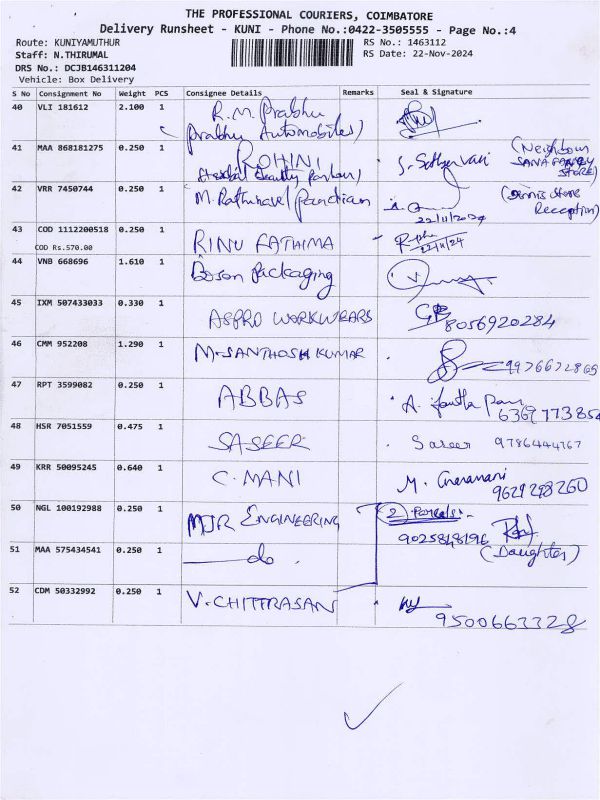 THE PROFESSIONAL COURIERS, COIMBATORE
Delivery Runsheet - KUNI - Phone No.:0422-3505555 - Page No.:4
Route: KUNIYAMUTHUR RS No.: 1463112
Staff: N.THIRUMAL RS Date: 22-Nov-2024
DRS No.: DCJB146311204
Vehicle: Box Delivery
S No Consignment No Weight PCS Consignee Details Remarks Seal & Signature
40 VLI 181612 2.100 1 R.M. Prabhu
(Prabhu Automobiles)
41 MAA 868181275 0.250 1 ROHINI (Neighbour
Herbal Beauty Parlour) S. Sathya Vani SANA FANCY
STORE)
42 VRR 7450744 0.250 1 M. Rathinavel Pandian (Dennis Store
22/11/2024 Reception)
43 COD 1112200518 0.250 1 RINU FATHIMA 22/11/24
COD Rs.570.00
44 VNB 668696 1.610 1 Boson Packaging
45 IXM 507433033 0.330 1 ASPRO WORKWEARS 8056920284
46 CMM 952208 1.290 1 M. SANTHOSH KUMAR 9976672869
47 RPT 3599082 0.250 1 ABBAS A.
6369773854
48 HSR 7051559 0.475 1 SASEER Saseer 9786444767
49 KRR 50095245 0.640 1 C. MANI M.
9629298260
50 NGL 100192988 0.250 1 MJR ENGINEERING (2) Parcels.
9025848196
51 MAA 575434541 0.250 1 do (Daughter)
52 CDM 50332992 0.250 1 V. CHITTRASAN
9500663328